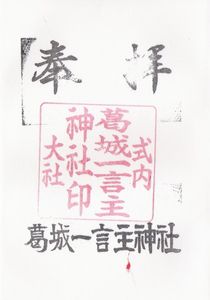 奉拝
式内
葛城一言主
神社印
大社
葛城一言主神社